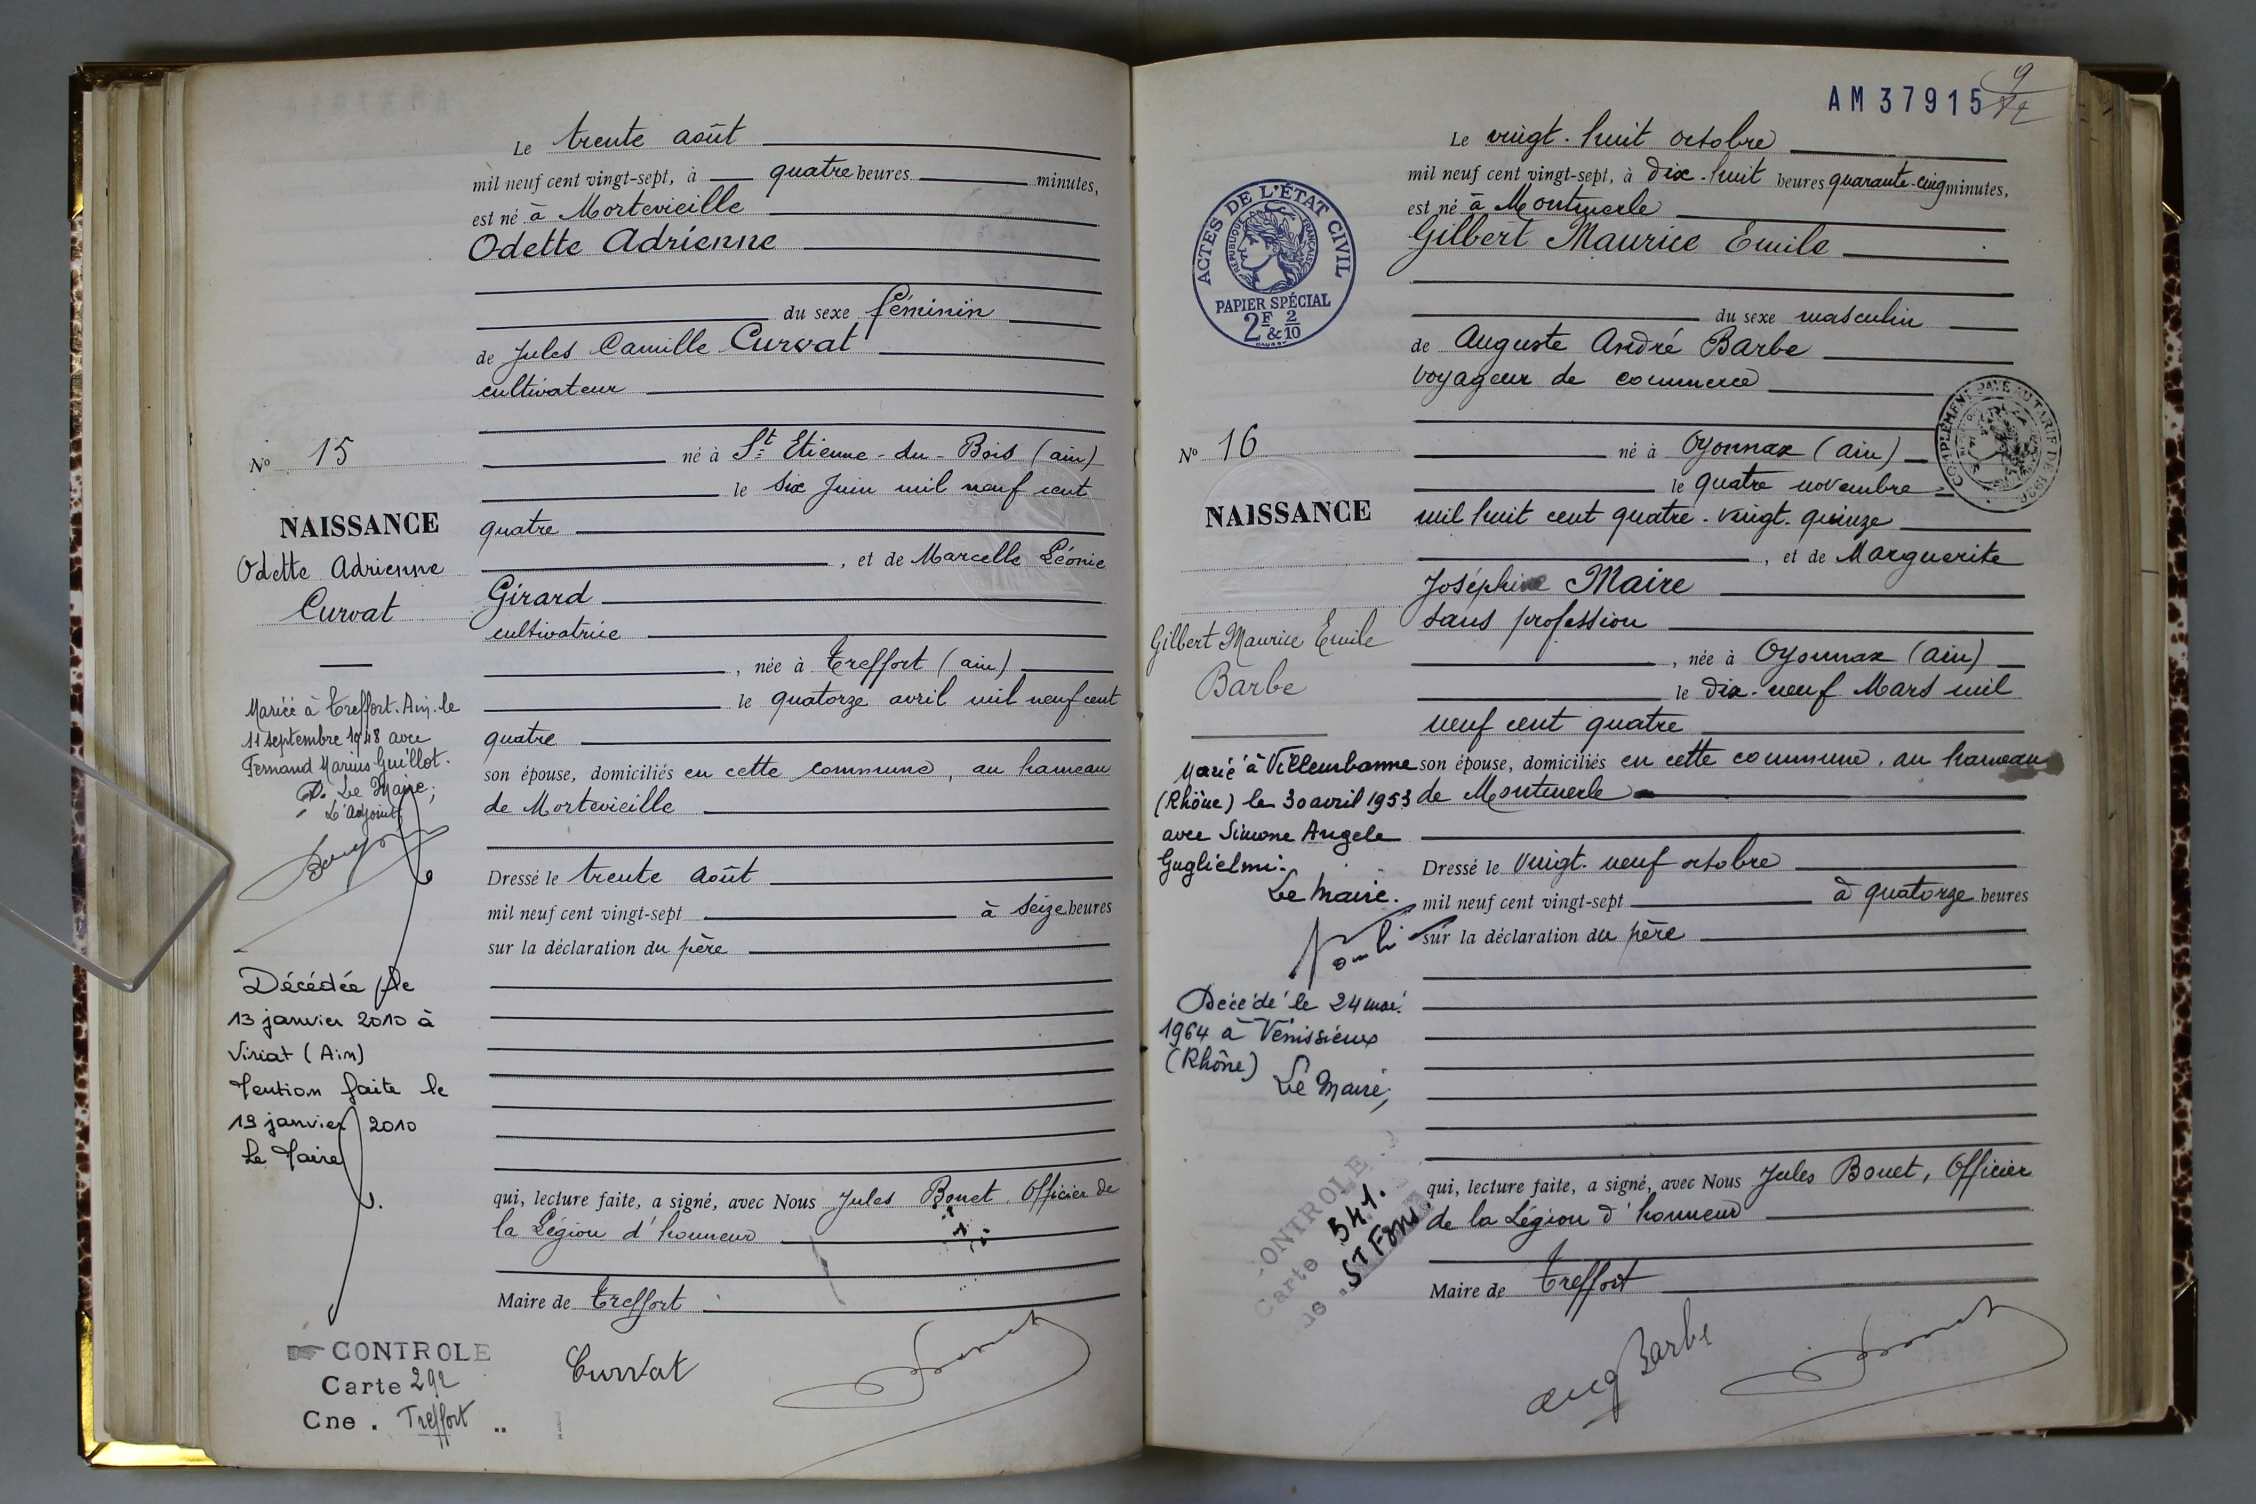 Le trente août
mil neuf cent vingt-sept, à quatre heures minutes,
est né à Mortevieille
Odette Adrienne
du sexe féminin
de Jules Camille Curvat
cultivateur
N° 15
né à St Etienne-du-Bois (ain)
le six Juin mil neuf cent
NAISSANCE
quatre
Odette Adrienne
Curvat
, et de Marcelle Léonie
Girard
cultivatrice
, née à Treffort (ain)
le quatorze avril mil neuf cent
quatre
Mariée à Treffort. Ain. le
11 septembre 1948 avec
Fernand Marius Guillot.
P. Le Maire;
L'adjoint
son épouse, domiciliés en cette commune, au hameau
de Mortevieille
Dressé le trente août
mil neuf cent vingt-sept à seize heures
sur la déclaration du père
Décédée le
13 janvier 2010 à
Viriat (Ain)
Mention faite le
19 janvier 2010
Le Maire
qui, lecture faite, a signé, avec Nous Jules Bouet, Officier de
la Légion d'honneur
Maire de Treffort
CONTROLE
Carte 292
Cne. Treffort
Curvat
AM37915
9
Le vingt-huit octobre
mil neuf cent vingt-sept, à dix-huit heures quarante-cinq minutes,
est né à Montmerle
Gilbert Maurice Emile
ACTES DE L'ÉTAT CIVIL
RÉPUBLIQUE FRANÇAISE
PAPIER SPÉCIAL
2F & 2/10
du sexe masculin
de Auguste André Barbe
voyageur de commerce
COMPLÉMENT PAYÉ AU TARIF DE 1926
N° 16
né à Oyonnax (ain)
le quatre novembre
NAISSANCE
mil huit cent quatre-vingt-quinze
, et de Marguerite
Joséphine Maire
sans profession
Gilbert Maurice Emile
Barbe
, née à Oyonnax (ain)
le dix-neuf Mars mil
neuf cent quatre
Marié à Villeurbanne
(Rhône) le 30 avril 1953
avec Simone Angele
Guglielmi.
Le Maire.
son épouse, domiciliés en cette commune, au hameau
de Montmerle
Dressé le vingt-neuf octobre
mil neuf cent vingt-sept à quatorze heures
sur la déclaration du père
Décédé le 24 mai
1964 à Vénissieux
(Rhône)
Le Maire,
CONTROLE
Carte 541.
St Fons
qui, lecture faite, a signé, avec Nous Jules Bouet, Officier
de la Légion d'honneur
Maire de Treffort
Aug Barbe